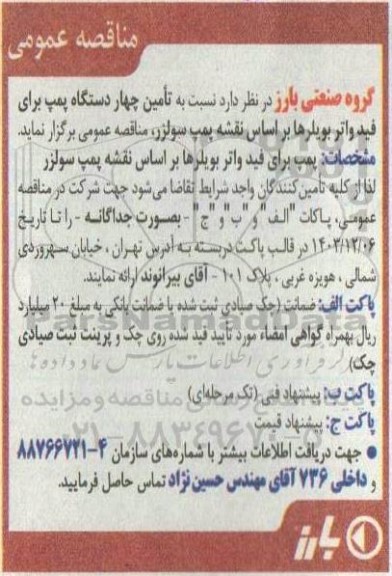 مناقصه عمومی
گروه صنعتی بارز در نظر دارد نسبت به تأمین چهار دستگاه پمپ برای
فید واتر بویلرها بر اساس نقشه پمپ سولزر، مناقصه عمومی برگزار نماید.
مشخصات: پمپ برای فید واتر بویلرها بر اساس نقشه پمپ سولزر
لذا از کلیه تامین کنندگان واجد شرایط تقاضا می‌شود جهت شرکت در مناقصه
عمومی، پاکات "الف" و "ب" و "ج" - بصورت جداگانه - را تا تاریخ
۱۴۰۲/۱۲/۰۶ در قالب پاکت دربسته به آدرس تهران ، خیابان سهروردی
شمالی ، هویزه غربی ، پلاک ۱۰۱ - آقای بیرانوند ارائه نمایند.
پاکت الف: ضمانت (چک صیادی ثبت شده یا ضمانت بانکی به مبلغ ۲۰ میلیارد
ریال بهمراه گواهی امضاء مورد تایید قید شده روی چک و پرینت ثبت صیادی
چک)
پاکت ب: پیشنهاد فنی (تک مرحله‌ای)
پاکت ج: پیشنهاد قیمت
● جهت دریافت اطلاعات بیشتر با شماره‌های سازمان ۴-۸۸۷۶۶۷۲۱
و داخلی ۷۳۶ آقای مهندس حسین نژاد تماس حاصل فرمایید.
بارز
ParsNamadData
۰۲۱-۸۸۳۴۹۶۷۰-۵